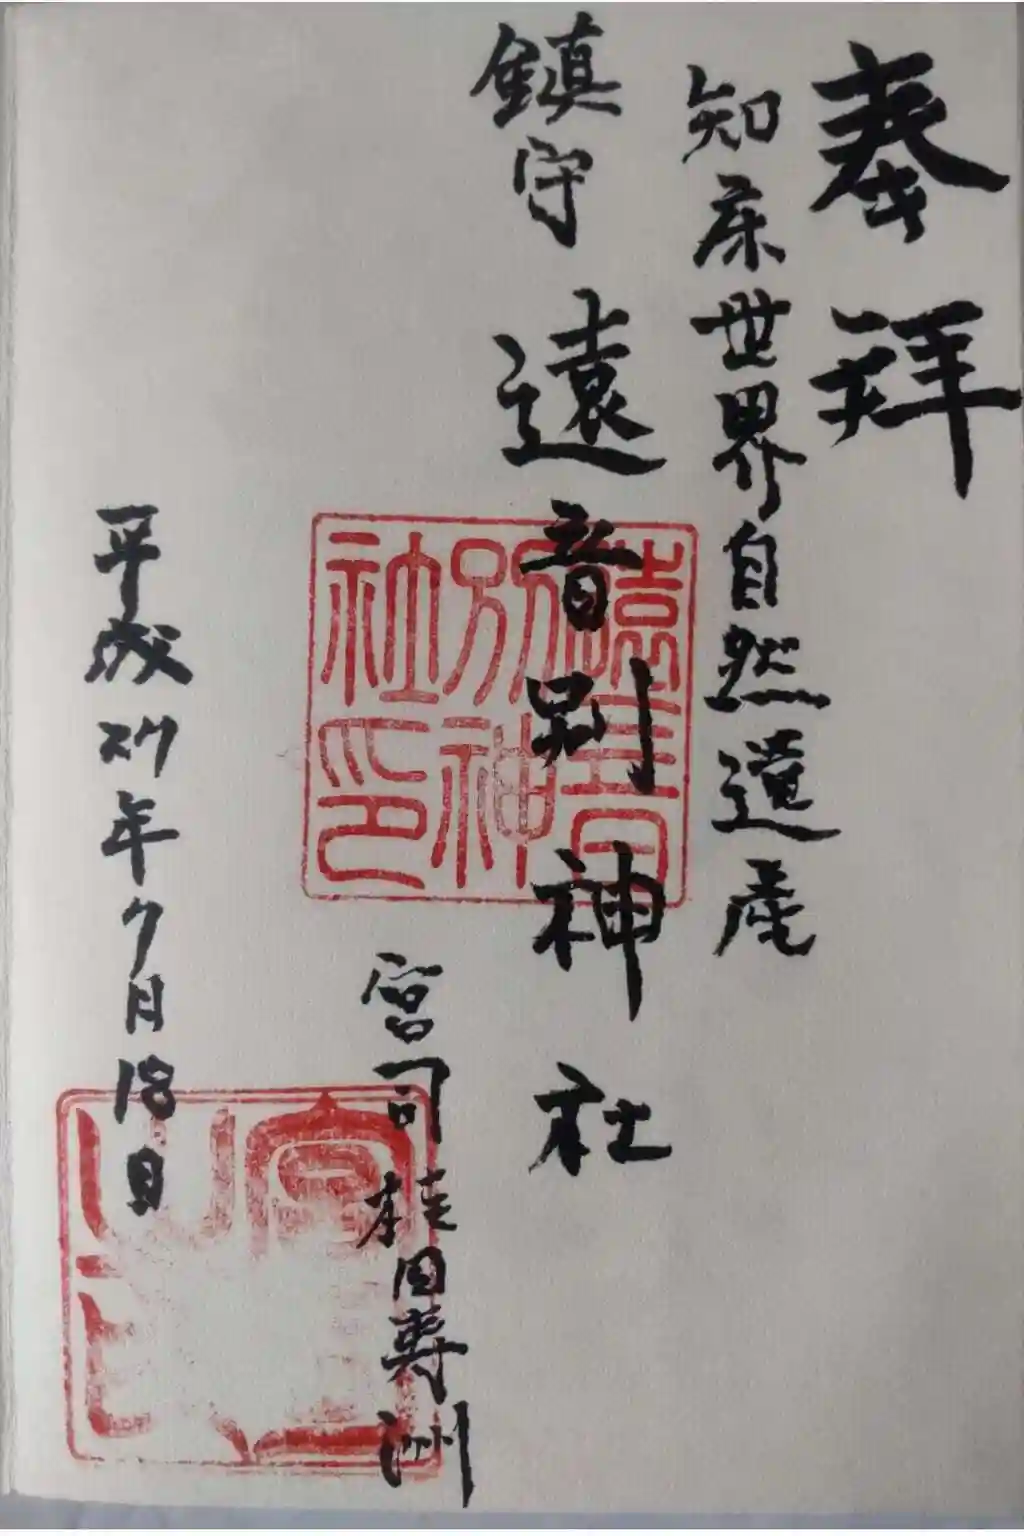 奉拝
知床世界自然遺産
鎮守 遠音別神社
遠音別神社印
宮司 桂田寿洲
平成27年7月18日